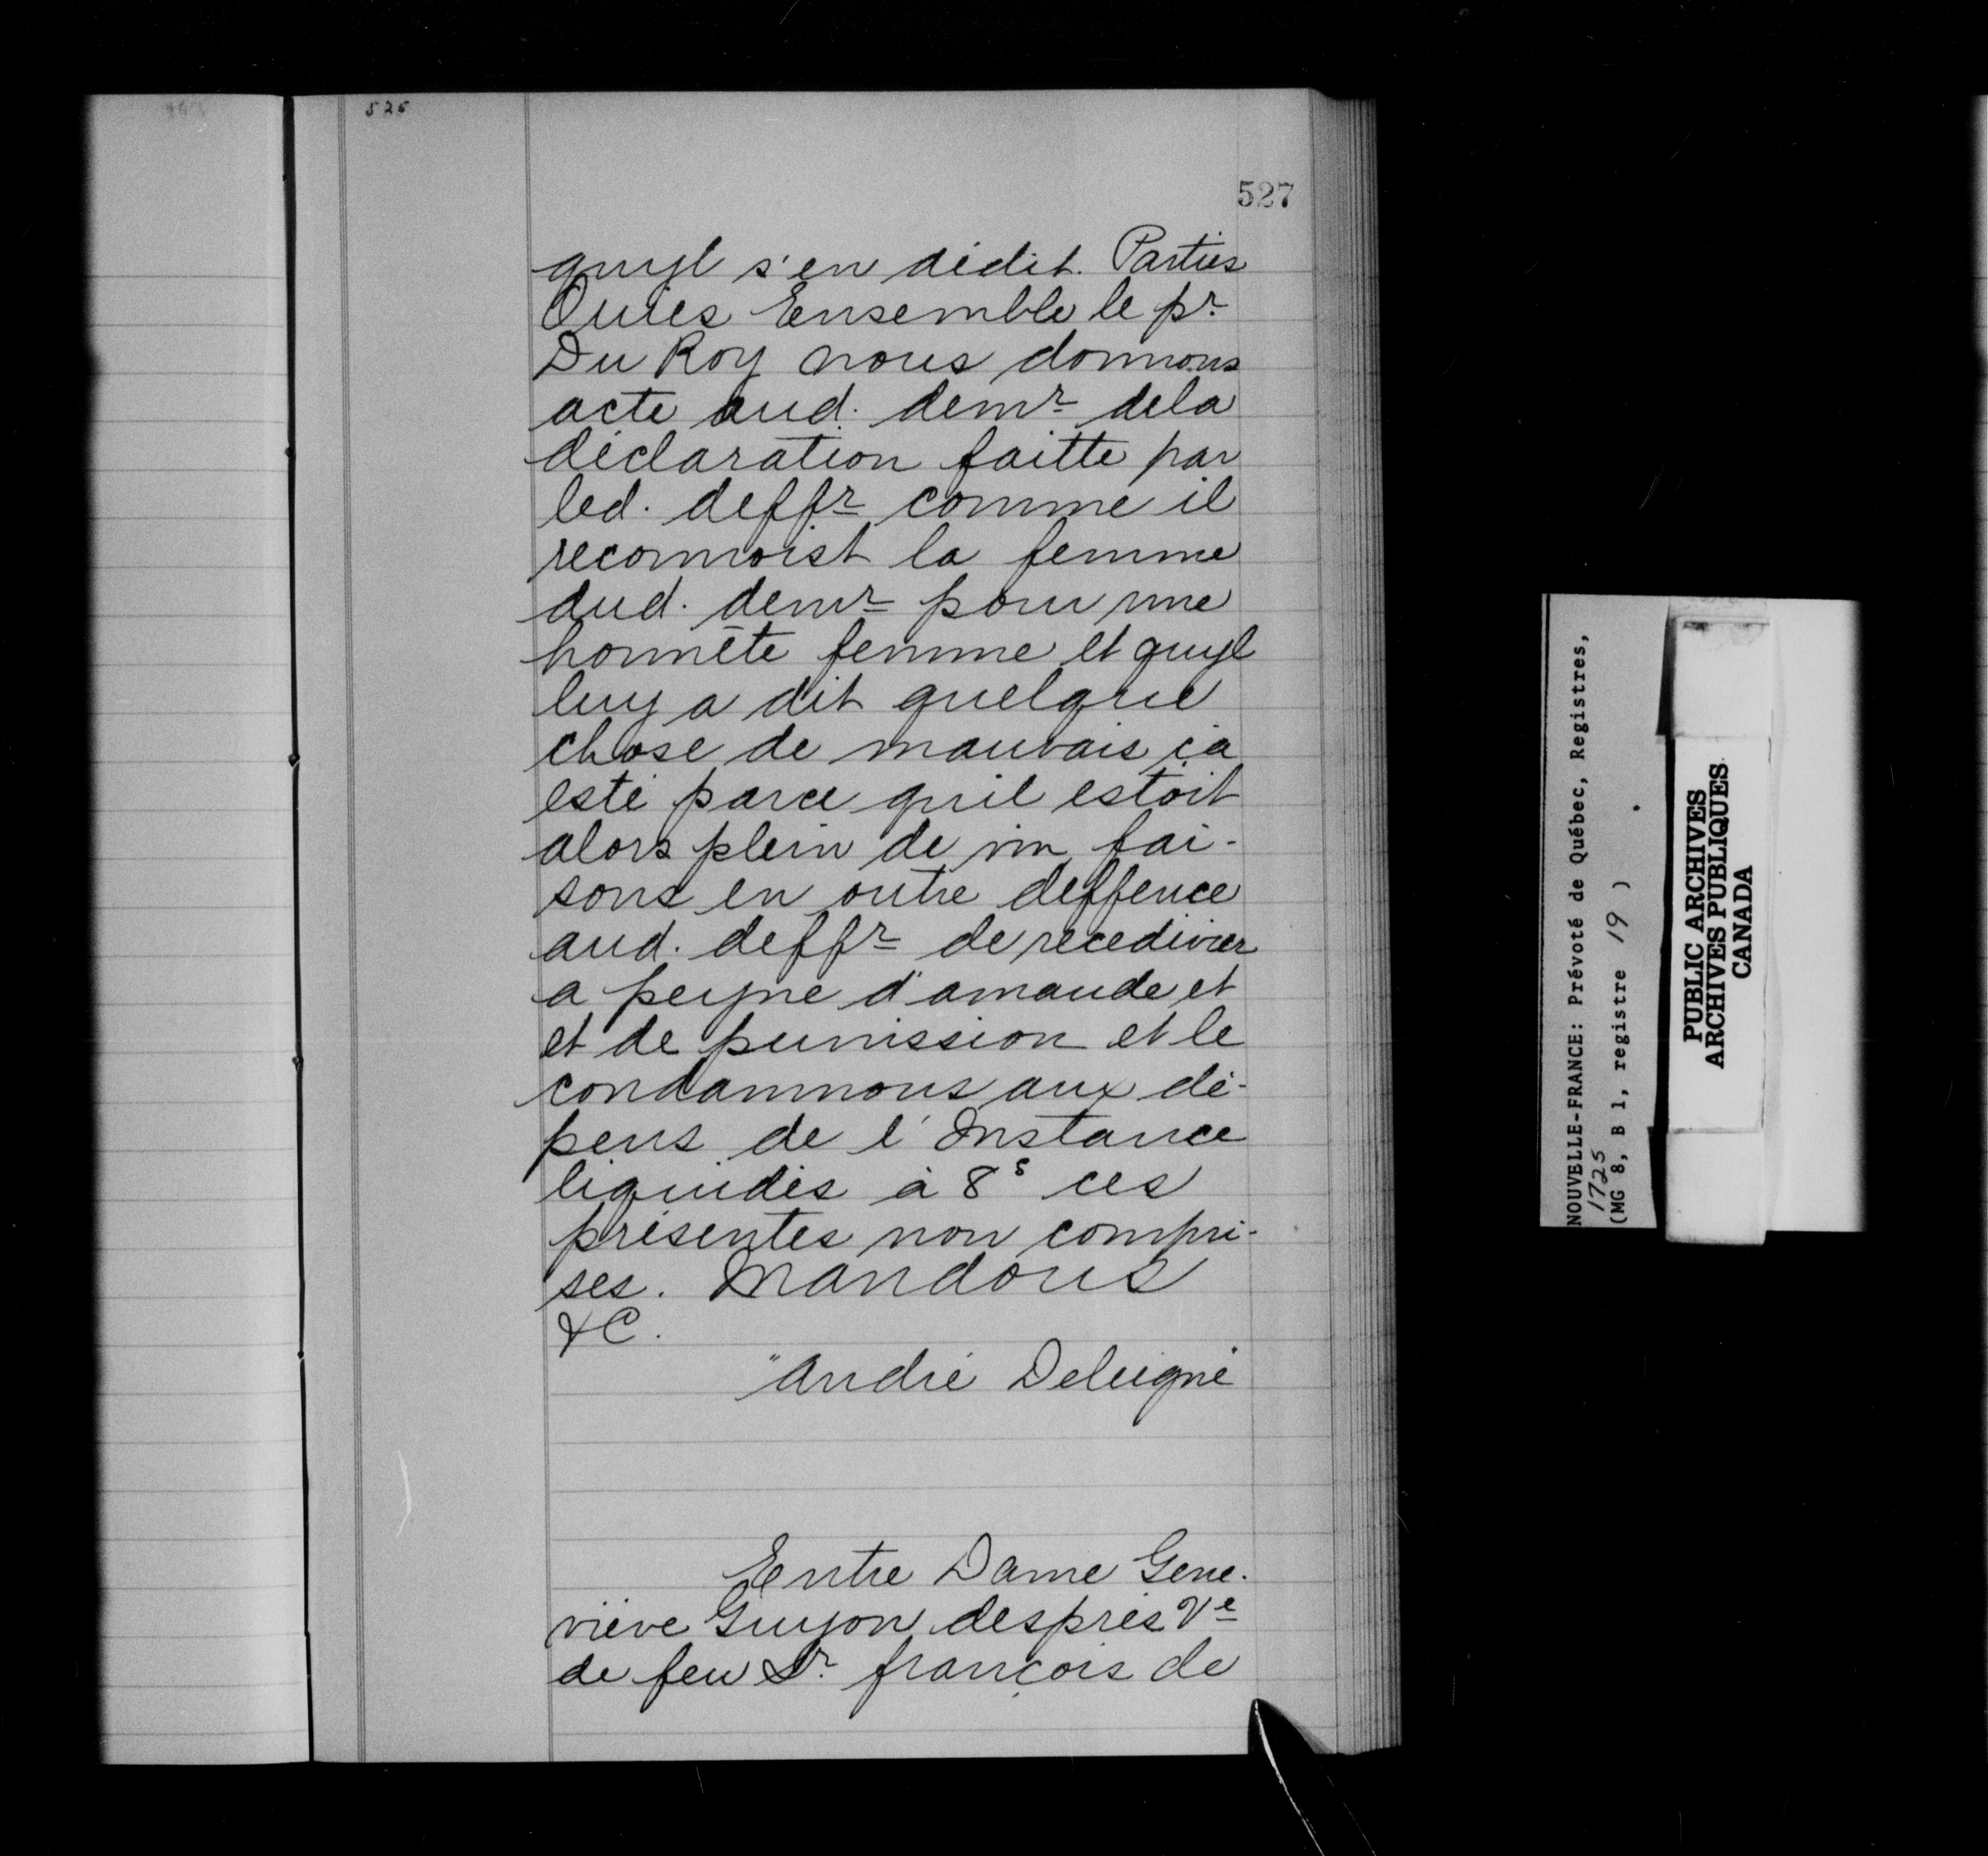 526
527
quyl s'en dédit. Parties
Ouïes Ensemble le pr
Du Roy nous donnons
acte aud. demr dela
déclaration faitte par
led. deffr comme il
reconnoist la femme
dud. demr pour une
honnête femme et quyl
luy a dit quelque
chose de mauvais ça
esté parce qu'il estoit
alors plein de vin fai-
sons en outre deffence
aud. deffr de recediver
a peyne d'amande et
et de punission et le
condamnons aux dé-
pens de l'Instance
liquidés à 8s ces
présentes non compri-
ses. Mandons
&C.
"André Deleigne"
Entre Dame Gene-
viève Guyon desprès Ve
de feu Sr françois de
NOUVELLE-FRANCE: Prévoté de Québec, Registres,
1725
(MG 8, B 1, registre 19 )
PUBLIC ARCHIVES
ARCHIVES PUBLIQUES
CANADA